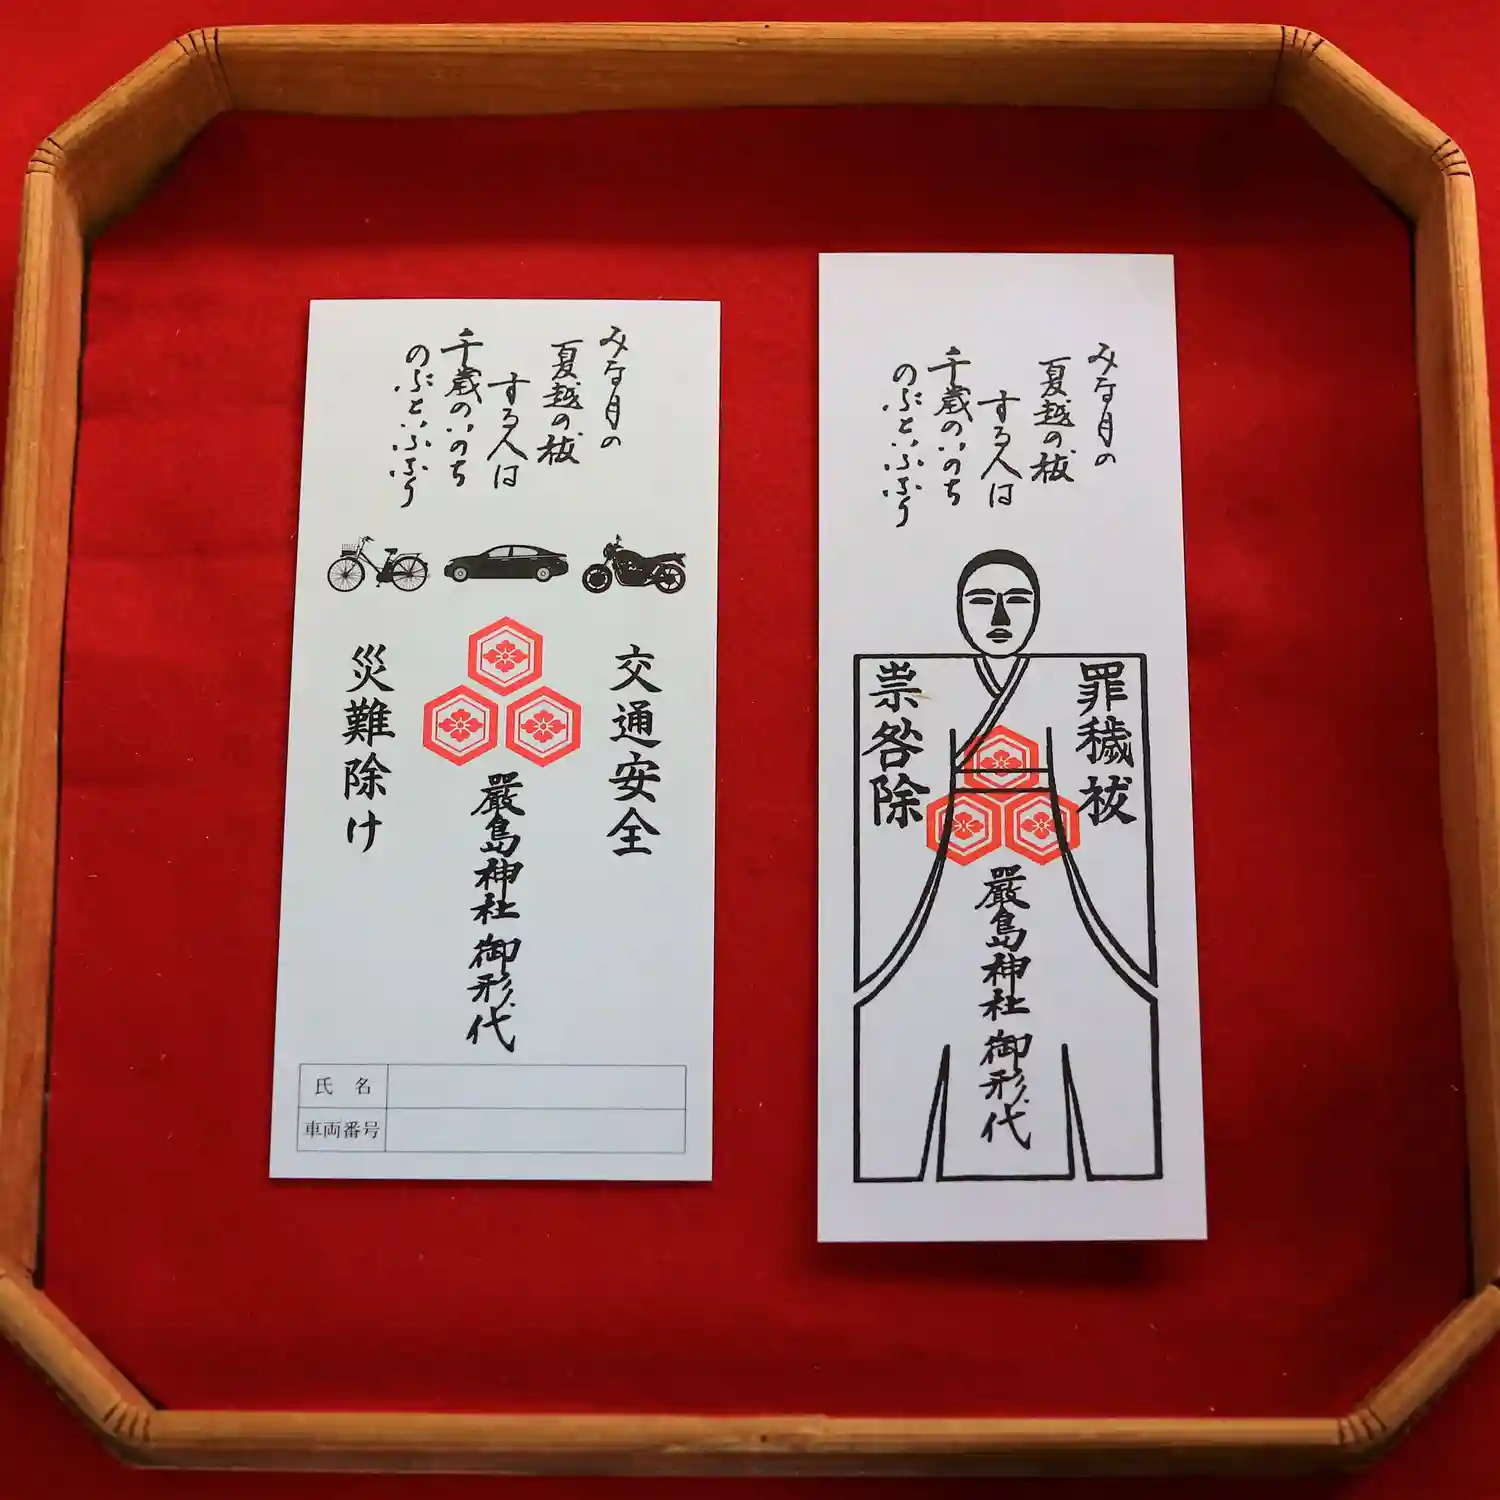 みな月の
夏越の祓
する人は
千歳のいのち
のぶといふなり
交通安全
災難除け
嚴島神社 御形代
氏 名
車両番号
みな月の
夏越の祓
する人は
千歳のいのち
のぶといふなり
罪穢祓
祟咎除
嚴島神社 御形代